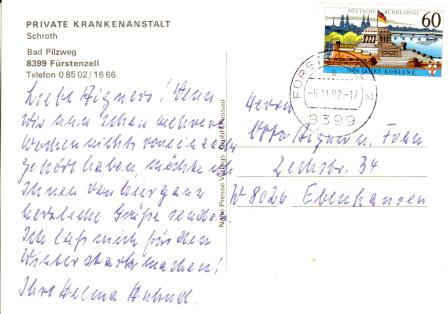 PRIVATE KRANKENANSTALT
Schroth
Bad Pilzweg
8399 Fürstenzell
Telefon 0 85 02 / 16 66
Liebe Aigners! Wenn
wir nun schon mehrere
Wochen nichts voneinander
gehört haben, möchte ich
Ihnen von hier ganz
herzliche Grüße senden.
Ich laß mich für den
Winter stark machen!
Ihre Helma
Neue Presse Verlags-GmbH, Passau
DEUTSCHE BUNDESPOST
60
2000 JAHRE KOBLENZ
FÜRST
-5.11.92-17
8399
Herrn
Otto Aigner u. Frau
Lechstr. 34
W 8026 Ebenhausen